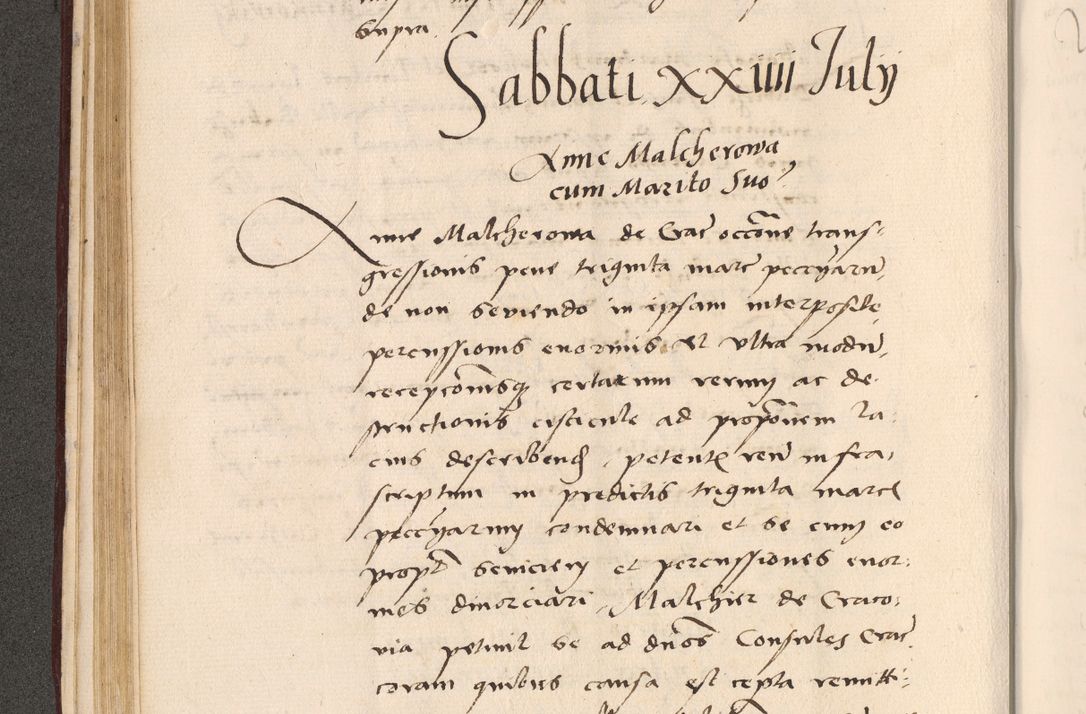 supra
Sabbati XXIIII Julij
Anne Malcherowa
cum Marito Suo
Anne Malcherowa de Crac occone trans-
gressionis pene triginta marc peccuiaru
de non seviendo in ipsam interposite
percussionis enormis et ultra modu
recepcionisq certarum rerum ac de-
structionis cisticule ad propoñem la-
cius describend, petent reu infra-
scriptum in predictis triginta marc
peccuiarum condemnari et se cum eo
propt seviciem et percussiones enor-
mes divorciari, Malchier de Craco-
via petiuit se ad dnos Consules Crac
coram quibus causa est cepta remitti